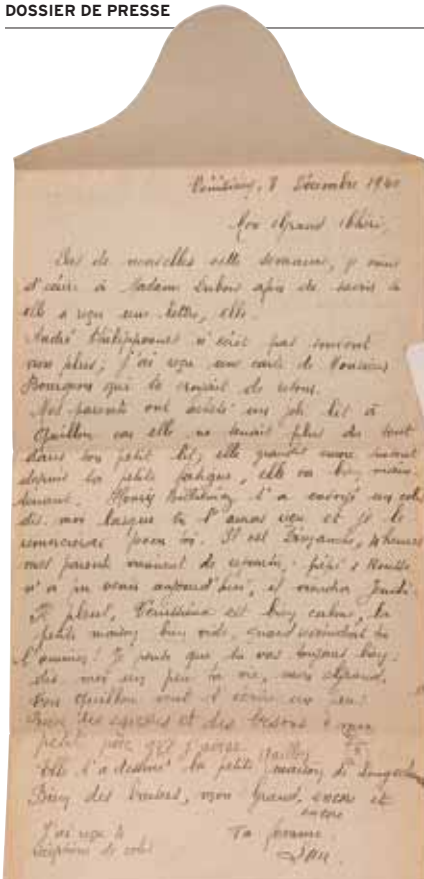 DOSSIER DE PRESSE
Vénissieux, 8 Décembre 1940
Mon Grand Chéri,
Pas de nouvelles cette semaine, je viens
d'écrire à Madame Dubois afin de savoir si
elle a reçu une lettre, elle.
André n'écrit pas souvent
non plus, j'ai reçu une carte de Monsieur
Bourgeon qui te croyait de retour.
Mes parents ont acheté un joli lit à
car elle ne tenait plus du tout
dans son petit lit, elle grandit encore
depuis sa petite fatigue, elle va bien main
tenant. Henri t'a envoyé un colis
dis moi lorsque tu l'auras reçu et je le
remercierai pour toi. Il est Dimanche, 4 heures
mes parents viennent de
n'a pu venir aujourd'hui, il viendra Jeudi.
Il pleut, Vénissieux est bien calme, la
petite maison bien vide, quand viendras tu
l'animer! Je pense que tu vas toujours bien.
dis moi un peu ta vie, mon Grand.
Ton veut t'écrire un peu.
Bien des et des à mon
petit père que j'aime
Elle t'a dessiné la petite maison de
Bien des baisers, mon Grand, encore et
encore
J'ai reçu le Ta femme.
de colis